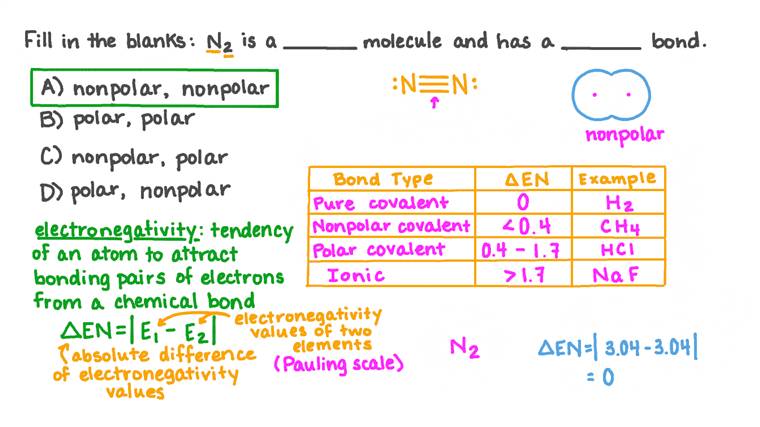 Fill in the blanks: N₂ is a ______ molecule and has a ______ bond.
A) nonpolar, nonpolar
B) polar, polar
C) nonpolar, polar
D) polar, nonpolar
:N≡N:
nonpolar
Bond Type ΔEN Example
Pure covalent 0 H₂
Nonpolar covalent <0.4 CH₄
Polar covalent 0.4 – 1.7 HCl
Ionic >1.7 NaF
electronegativity: tendency
of an atom to attract
bonding pairs of electrons
from a chemical bond
ΔEN=|E₁ − E₂|
electronegativity
values of two
elements
(Pauling scale)
absolute difference
of electronegativity
values
N₂
ΔEN=|3.04-3.04|
= 0